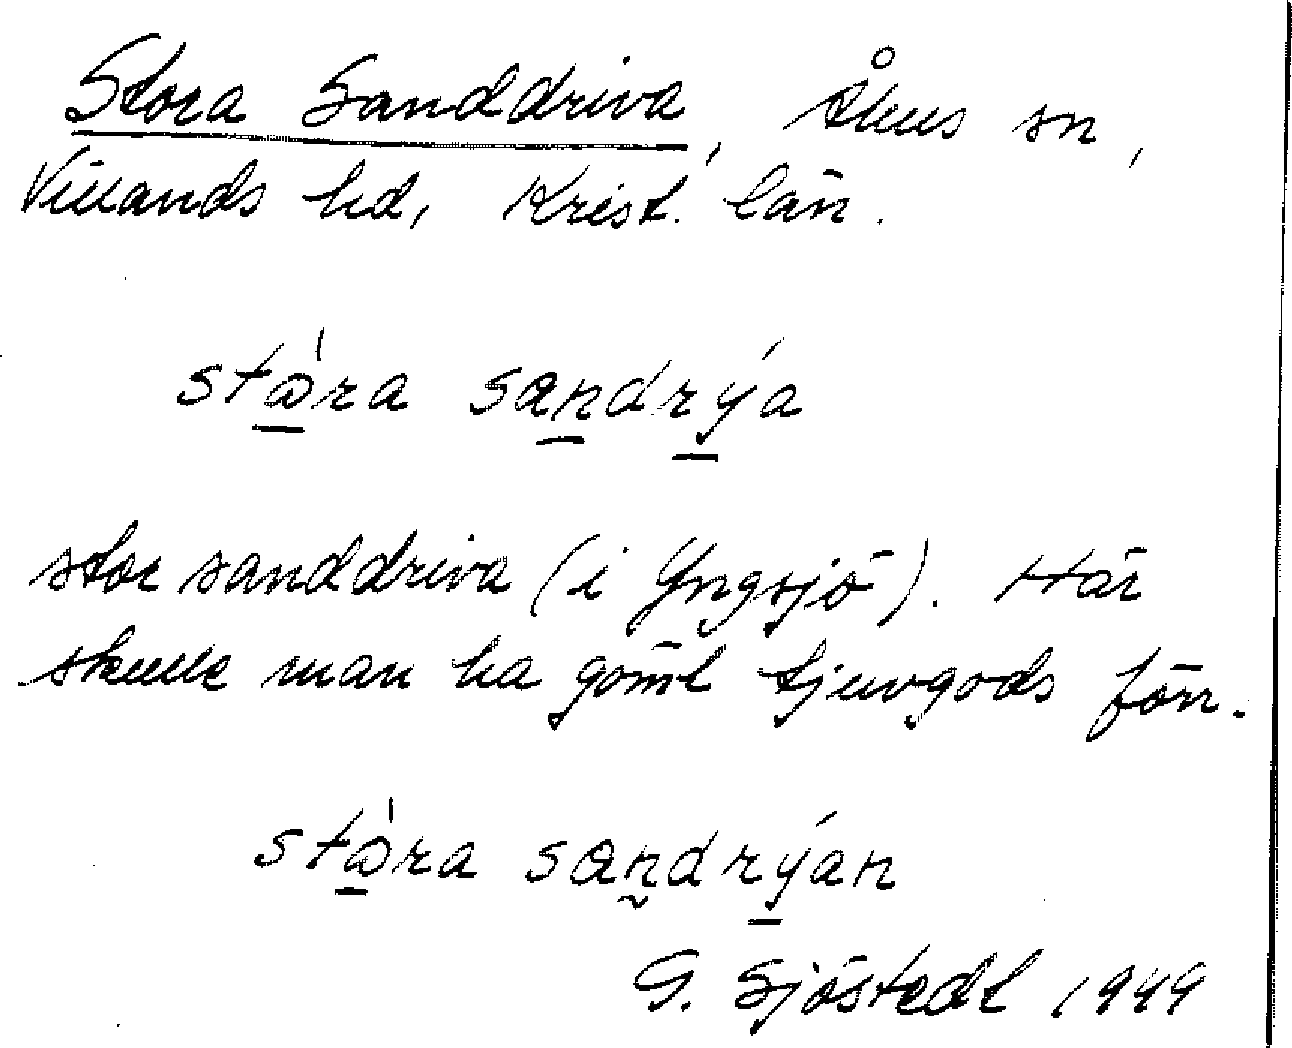 Stora Sanddriva, Åhus sn,
Villands hd, Krist. län.
stὼra sandrýa
stor sanddriva (i Yngsjö). Här
skulle man ha gömt tjuvgods förr.
stὼra sandrýan
G. Sjöstedt 1949